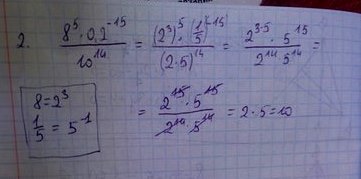 2. \frac{8^5 \cdot 0,2^{-15}}{10^{14}} = \frac{(2^3)^5 \cdot (\frac{1}{5})^{-15}}{(2 \cdot 5)^{14}} = \frac{2^{3 \cdot 5} \cdot 5^{15}}{2^{14} 5^{14}} =
8 = 2^3
\frac{1}{5} = 5^{-1}
= \frac{2^{15} \cdot 5^{15}}{2^{14} 5^{14}} = 2 \cdot 5 = 10